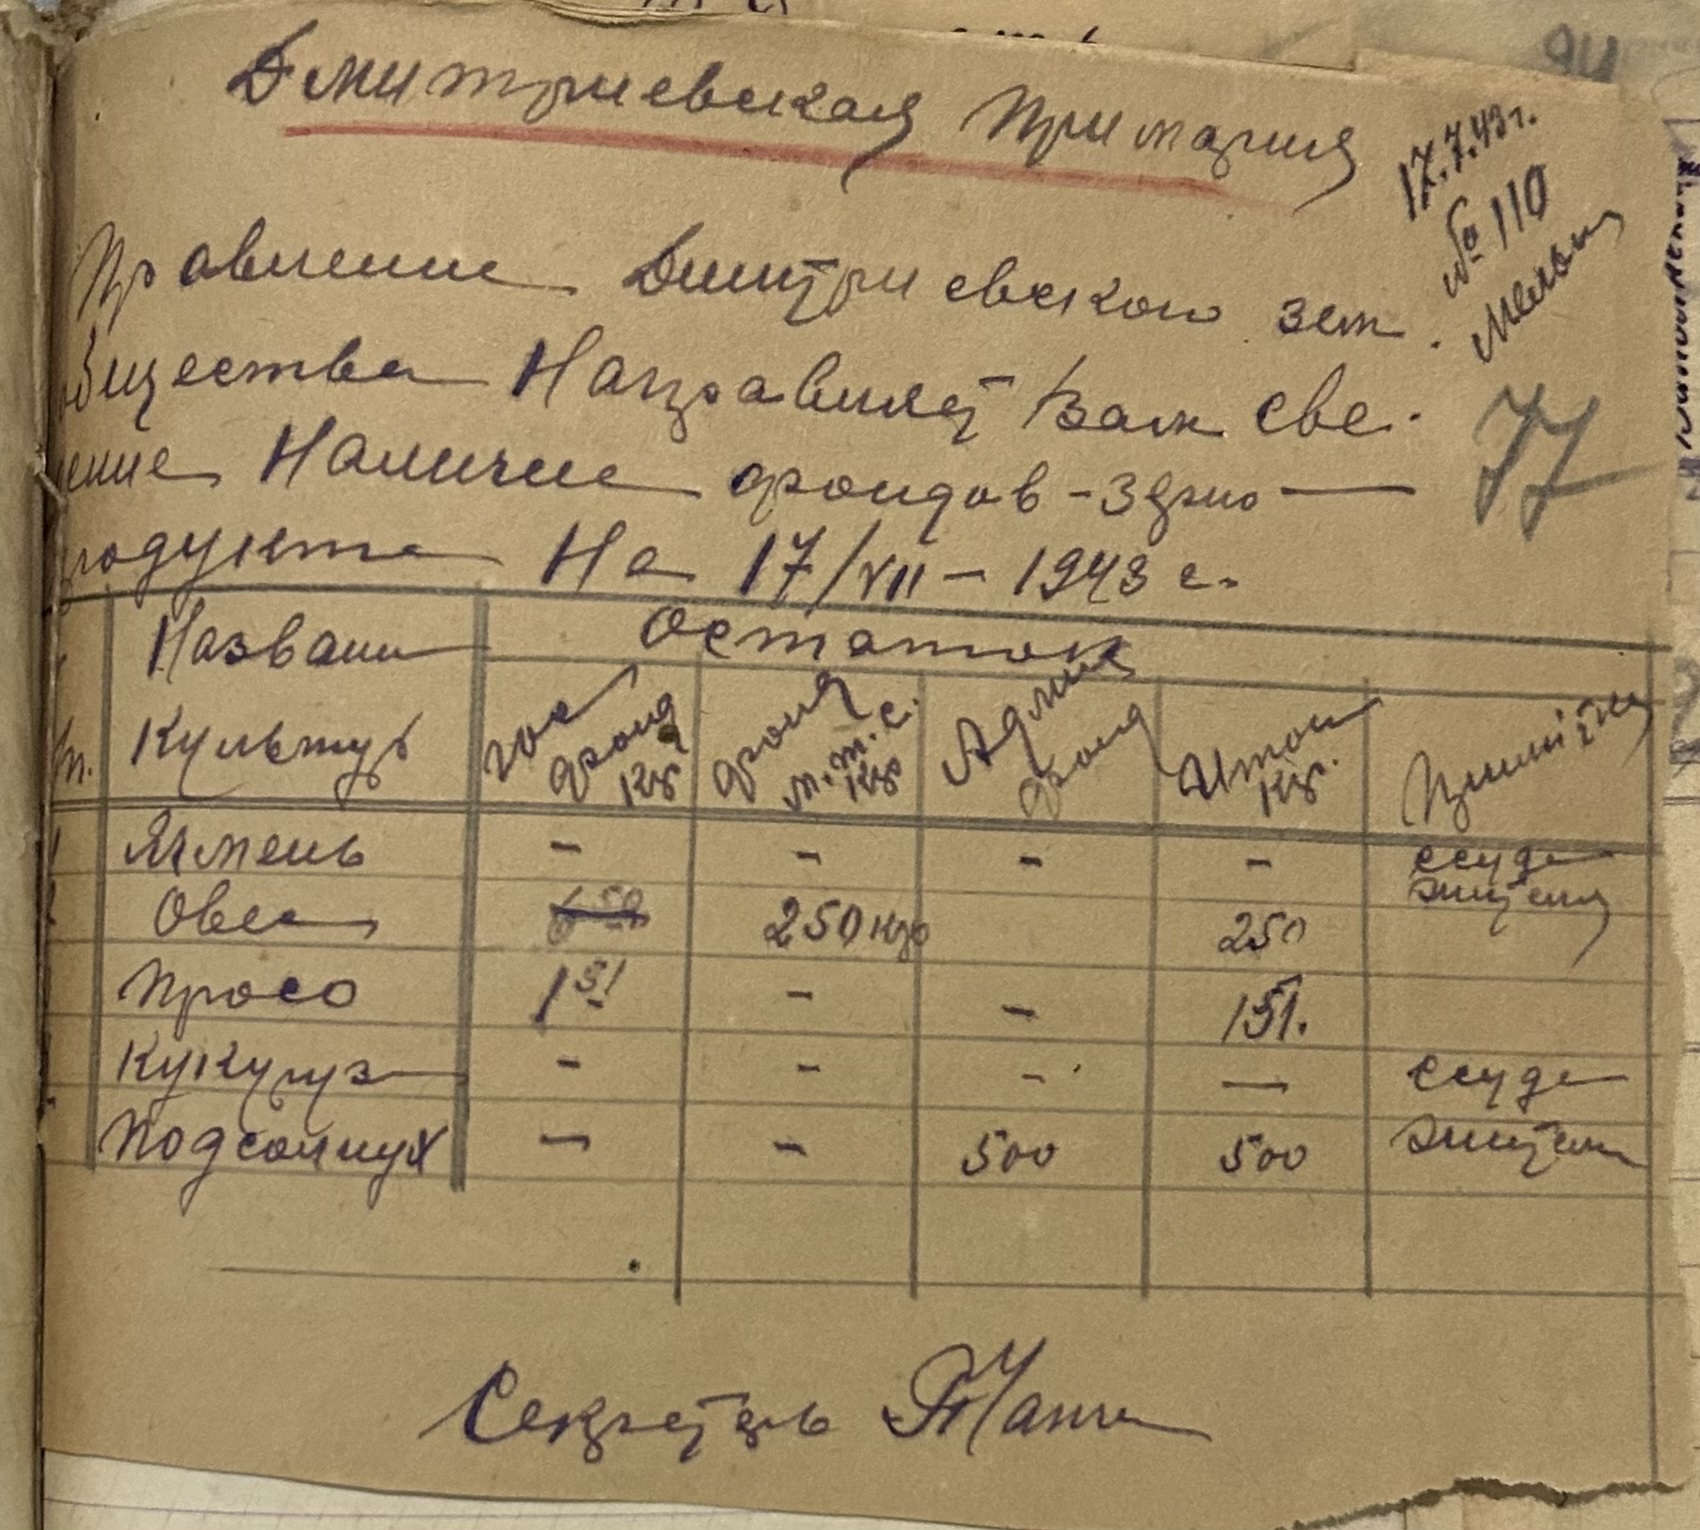 Дмитриевская Примария
17.7.43г.
№ 110
Правление Дмитриевского зем.
общества Направляет Вам све-
дение Наличие фондов - зерно
продукта На 17/VII - 1943 г.
77
Названи Остаток
Культур
гос фонд кгр
фонд м.т.с. кгр
Админ фонд
Итого кгр.
Ячмень - - - - ссуда
Овес 650 250 кгр 250
Просо 151 - - 151.
Кукуруз - - - — ссуда
Подсолнух - - 500 500
Секретарь